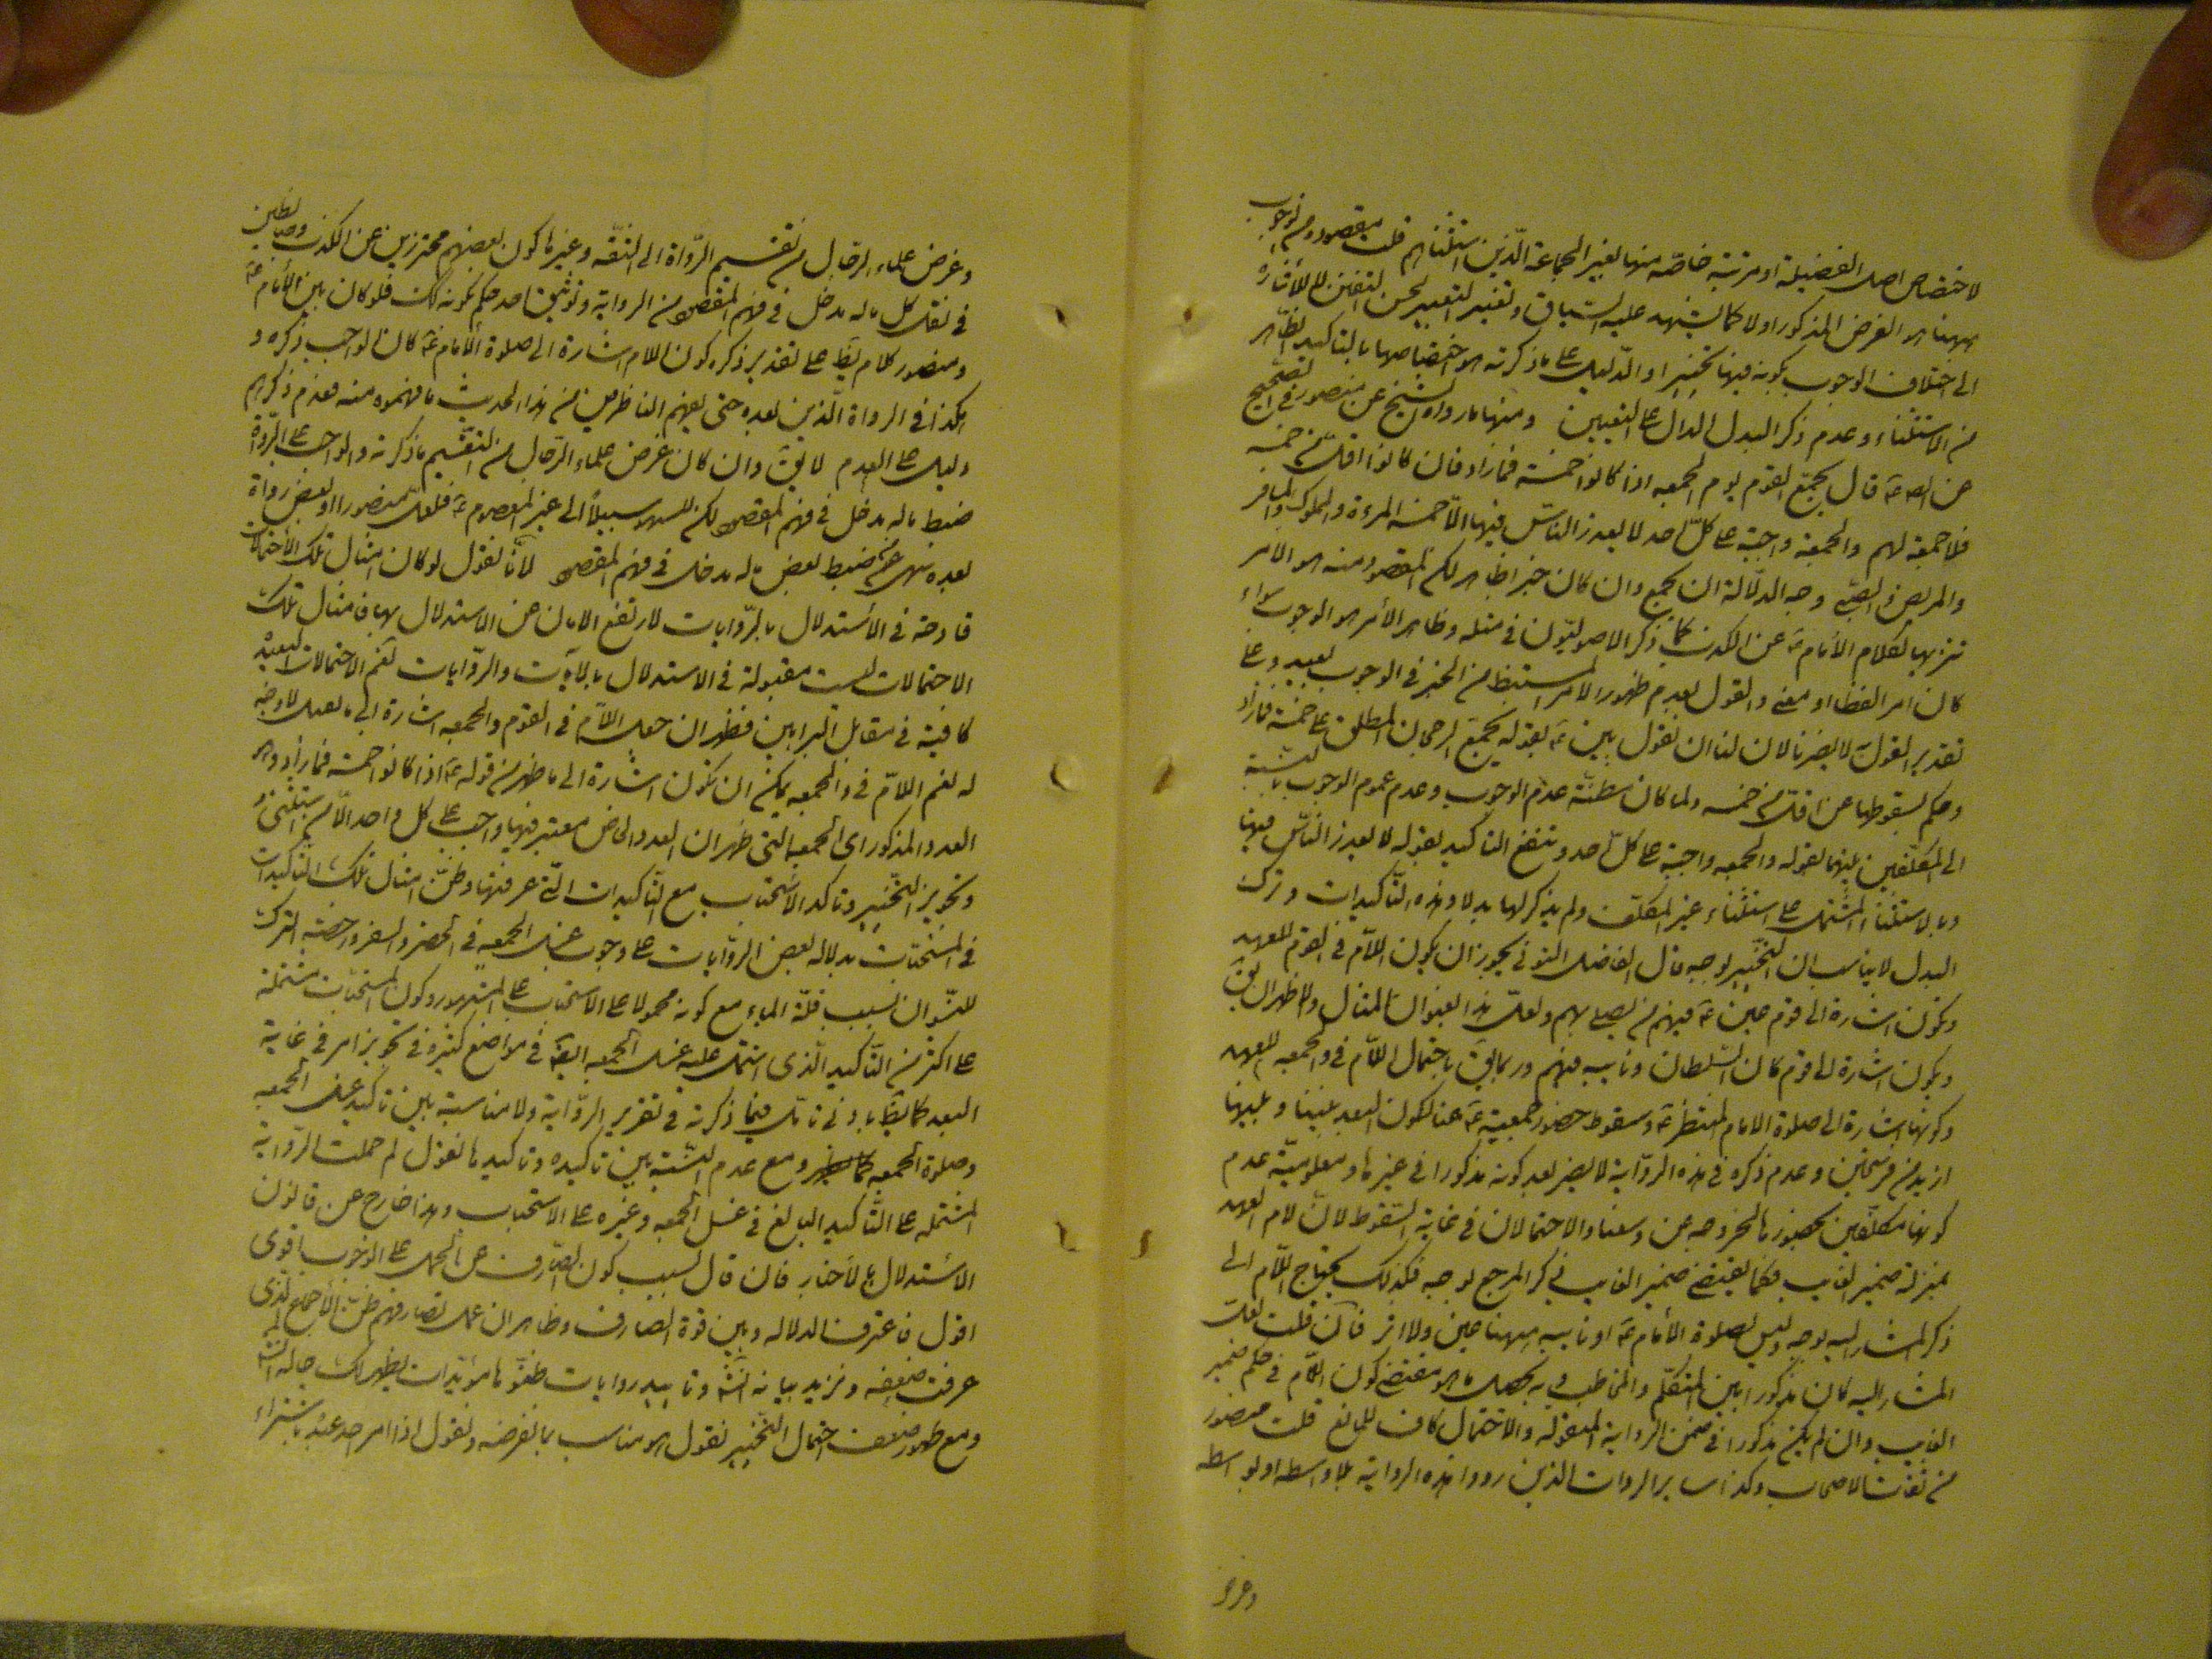 لاختصاص اصل الفضيلة او مرتبة خاصّة منها لغير الجماعة الّذين استثناهم قلت مقصوده من الوجوب
ههنا هو الغرض المذكور اولا كما يشهد عليه السياق وتغيير التعبير لحسن التفنن او للأشارة
الى اختلاف الوجوب بكونه فيها تخييرا والدّليل على ما ذكرته هو اختصاصها بالتاكيد الظاهر
من الاستثناء وعدم ذكر البدل الدال على التعيين ومنها ما رواه الشيخ عن منصور في الصحيح
عن الصه عم قال يجمّع القوم يوم الجمعه اذا كانوا خمسة فما زاد فان كانوا اقلّ من خمسه
فلا جمعة لهم والجمعة واجبة على كلّ احد لا يعذر النّاس فيها الّا خمسة المرءة والمملوك والمسافر
والمريض والصبيّ وجه الدّلالة ان يجمع وان كان خبرا ظاهرا لكن المقصود منه هو الامر
تنزيها لكلام الأمام عم عن الكذب كما ذكر الاصوليّون في مثله وظاهر الأمر هو الوجوب سواء
كان امر الفظا او معنى والقول بعدم ظهور الامر المستنبط من الخبر في الوجوب بعيد وعلى
تقدير القول لا يضرنا لان لنا ان نقول بين عم بقوله يجمّع الرجحان المطلق على خمسة فما زاد
وحكم بسقوطها عن اقلّ من خمسه ولما كان مظنّة عدم الوجوب وعدم عموم الوجوب بالنسبة
الى المكلّفين بينهما بقوله والجمعه واجبة على كلّ احد وتتضح التاكيد بقوله لا يعذر النّاس فيها
وبالاستثناء المشتمل على استثناء غير المكلّف ولم يذكر لها بدلا وهذه التّاكيدات وترك
البدل لا يناسبان التخيير بوجه قال الفاضل التوني يجوز ان يكون اللّام في القوم للعهد
وتكون اشارة الى قوم حين عم فيهم من يصلى بهم ولعلّ هذا بعنوان المثال والاظهر ان يق
ويكون اشارة الى قوم كان السّلطان ونايبه فيهم وربما يق باحتمال اللّام في والجمعه للعهد
وكونها اشارة الى صلوة الامام المنتظر عم وسقوط حضور جمعته عم عنا لكون البعد بيننا وبينها
ازيد من فرسخين وعدم ذكره في هذه الرّواية لا يضر بعد كونه مذكورا في غيرها ومعلوميّة عدم
كوننا مكلّفين بحضورها لخروجه عن وسعنا والاحتمالان في غاية السّقوط لانّ لام العهد
بمنزلة ضمير الغايب فكما يقتضى ضمير الغايب ذكر المرجع بوجه فكذلك يحتاج اللّام الى
ذكر المشار اليه بوجه وليس لصلوة الأمام عم او نايبه ههنا عين ولا اثر فان قلت لعلّ
المشار اليه كان مذكورا بين المتكلّم والمخاطب وبه يحصل ما هو مقتضى كون اللّام في حكم ضمير
الغايب وان لم يكن مذكورا في ضمن الرواية المنقولة والاحتمال كاف للمانع قلت منصور
من ثقات الاصحاب وكذا ساير الروات الذين رووا هذه الرواية بلا واسطه او بواسطه
وغرض
وغرض علماء الرّجال من تقسيم الرّواة الى الثقّه وغيرها كون بعضهم محترزين عن الكذب وضابطين
في نقل كل ما له مدخل في فهم المقصود من الرواية وتوثيق احد حكم بكونه كك فلو كان بين الأمام عم
ومنصور كلام يظ على تقدير ذكره كون اللام اشارة الى صلوة الأمام عم كان الواجب ذكره و
هكذا في الرواة الّذين بعده حتى يفهم الناظر من هذا الحديث ما فهموه منه فعدم ذكرهم
دليل على العدم لا يق وان كان غرض علماء الرّجال من التقسيم ما ذكرته والواجب على الرّواة
ضبط ما له مدخل في فهم المقصود لكن للسهو سبيلاً الى غير المعصوم عم فلعلّ منصورا او بعض رواة
بعده سهى عن ضبط بعض ما له مدخل في فهم المقصود لأنّا نقول لو كان امثال تلك الأحتمالات
قادحة في الأستدلال بالرّوايات لارتفع الامان عن الاستدلال بها فامثال تلك
الاحتمالات ليست مقبولة في الاستدلال بالآيات والرّوايات نعم الاحتمالات البعيدة
كافية في مقابل البراهين فظهر ان جعل اللّام في القوم والجمعه اشارة الى ما نقل لا وجه
له نعم اللّام في والجمعه يمكن ان تكون اشارة الى ما ظهر من قوله عم اذا كانوا خمسة فما زاد وهو
العدد المذكور اى الجمعه التى ظهر ان العدد الخاص معتبر فيها واجب على كل واحد الّا من استثنى
وتجويز التّخيير وتاكد الأستحباب مع التّاكيدات الّتي عرفتها وظنّ امثال تلك التاكيدات
في المستحبّات بدلالة بعض الرّوايات على وجوب غسل الجمعه في الحضر والسفر ورخصة الترك
للنّسوان بسبب قلّة الماء مع كونه محمولا على الاستحباب على المشهور وكون المستحبّات مشتملة
على اكثر من التّاكيد الّذى اشتمل عليه غسل الجمعه ايضا في مواضع كثيرة في تجويز امر في غاية
البعد كما يظ بادنى تامّل فيما ذكرته في تقرير الرّواية ولا مناسبة بين تاكيد غسل الجمعه
وصلوة الجمعه ومع عدم النّسبة بين تاكيده وتاكيدها نقول لم حملت الرّواية
المشتمله على التّاكيد البالغ في غسل الجمعه وغيره على الاستحباب وهذا خارج عن قانون
الأستدلال بالأخبار فان قال بسبب كون الصّارف عن الحمل على الوجوب اقوى
اقول فاعترف الدلاله وبين قوة الصارف وظاهر ان عمل الصارف ظنّ الأجماع الذى
عرفت ضعفه ومزيد بيانه انش وتاييد روايات ظنّوها مؤيّدات يظهر لك حاله انش
ومع ظهور ضعف احتمال التّخيير نقول هو مناسب بما نفرضه ونقول اذا امر احد عبده باشتراء